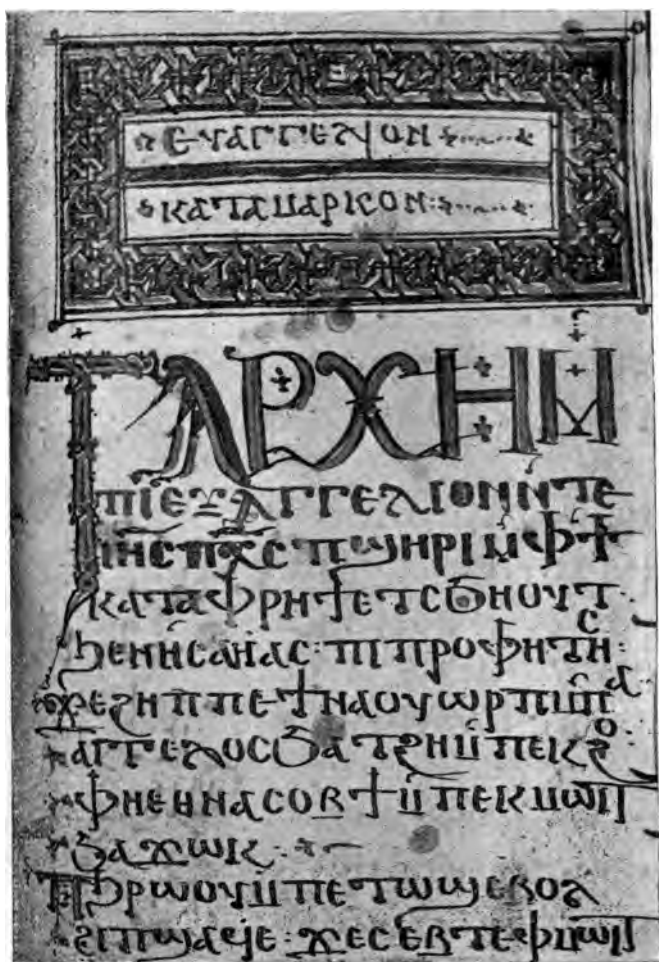 ⲉⲩⲁⲅⲅⲉⲗⲓⲟⲛ
ⲕⲁⲧⲁ ⲙⲁⲣⲕⲟⲛ
ⲧⲁⲣⲭⲏ ⲙ̇
ⲡⲓⲉⲩⲁⲅⲅⲉⲗⲓⲟⲛ ⲛ̇ⲧⲉ
ⲓⲏⲥ ⲡⲭⲥ ⲡϣⲏⲣⲓ ⲙ̇ⲫϯ
ⲕⲁⲧⲁ ⲫⲣⲏϯ ⲉⲧⲥϧⲏⲟⲩⲧ
ϧⲉⲛ ⲏ̇ⲥⲁⲏⲁⲥ: ⲡⲓⲡⲣⲟⲫⲏⲧⲏⲥ:
ϫⲉ ϩⲏⲡⲡⲉ ϯⲛⲁⲟⲩⲱⲣⲡ ⲙ̇ⲡⲁ
ⲁⲅⲅⲉⲗⲟⲥ ϧⲁⲧϩⲏ ⲙⲡⲉⲕϩⲟ
ⲫⲏ ⲉⲑⲛⲁⲥⲟⲃϯ ⲙⲡⲉⲕⲙⲱⲓⲧ
ϧⲁϫⲱⲕ
ⲡϧⲣⲱⲟⲩ ⲙⲡⲉⲧⲱϣ ⲉⲃⲟⲗ
ϩⲓ ⲡϣⲁϥⲉ: ϫⲉ ⲥⲉⲃⲧⲉ ⲫⲙⲱⲓⲧ